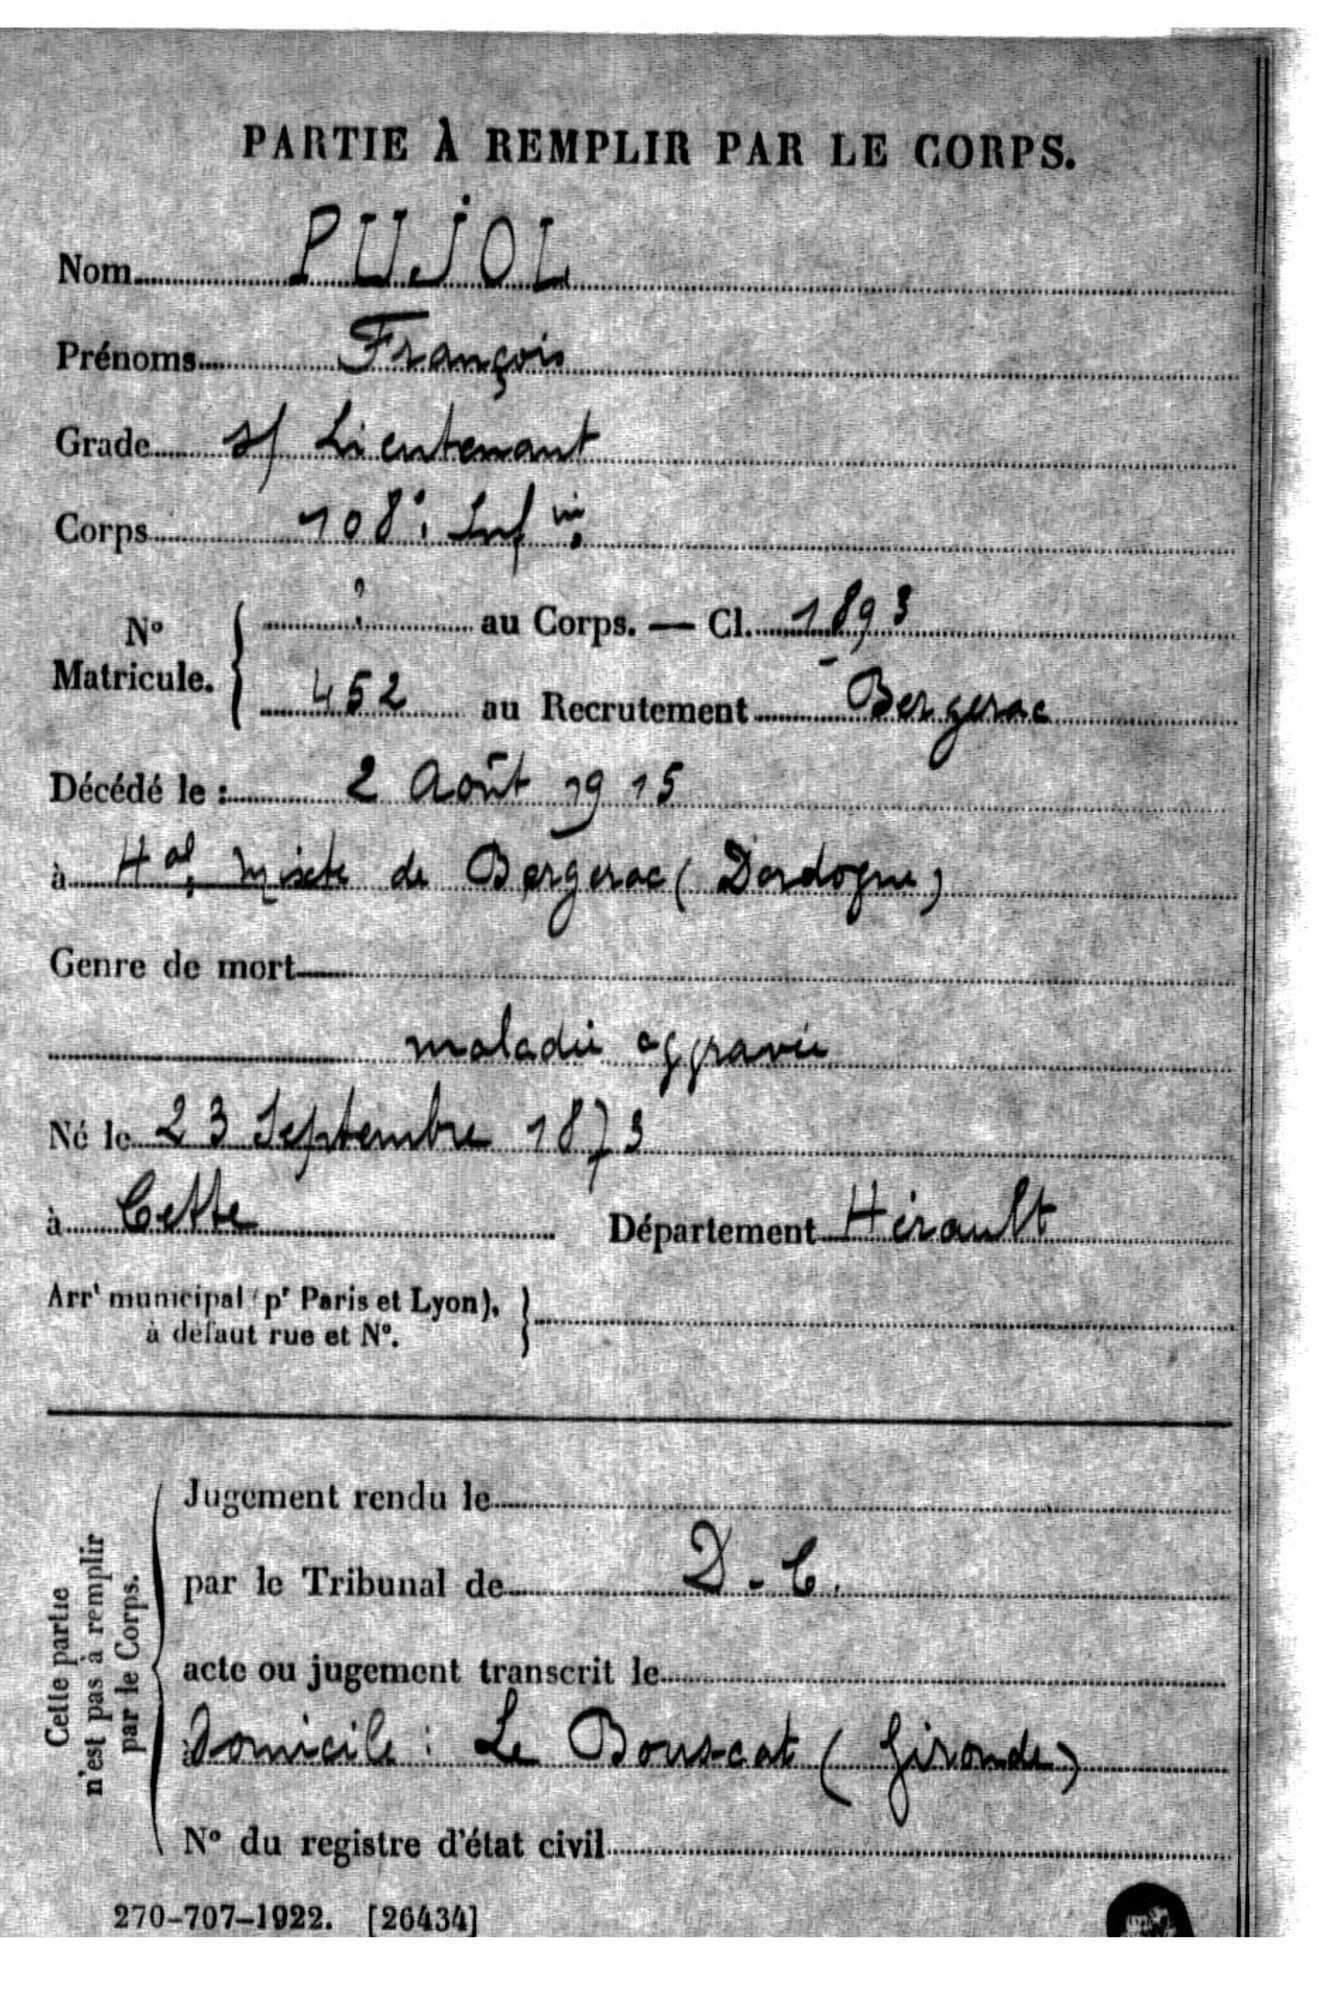 PARTIE À REMPLIR PAR LE CORPS.
Nom PUJOL
Prénoms François
Grade s/ Lieutenant
Corps 108e. Inf ie.
No Matricule. ? au Corps. — Cl. 1893
452 au Recrutement Bergerac
Décédé le : 2 Août 1915
à Hal. mixte de Bergerac (Dordogne)
Genre de mort
maladie aggravée
Né le 23 Septembre 1873
à Cette Département Hérault
Arrt municipal (pr Paris et Lyon),
à défaut rue et No.
Cette partie n'est pas à remplir par le Corps.
Jugement rendu le
par le Tribunal de D. C.
acte ou jugement transcrit le
Domicile : Le Bouscat (Gironde)
No du registre d'état civil
270-707-1922. [26434]